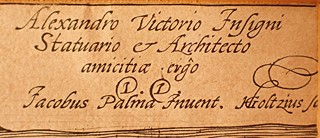 Alexandro Victorio Insigni
Statuario & Architecto
amicitiæ ergo
Jacobus Palma Invent. HGoltzius